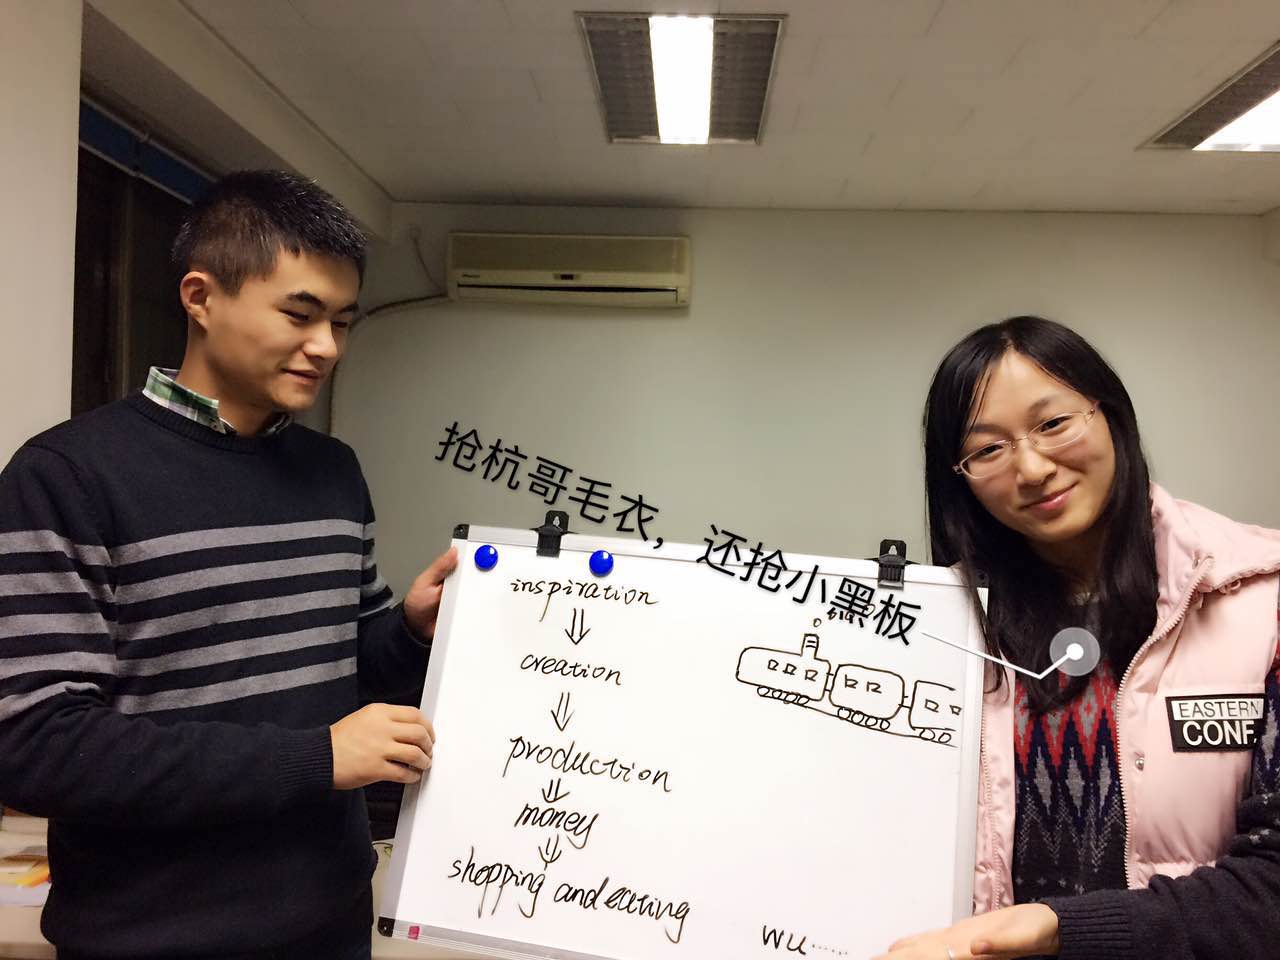 抢杭哥毛衣，还抢小黑板
inspiration
⇓
creation
⇓
production
⇓
money
⇓
shopping and eating
wu......
EASTERN
CONF.